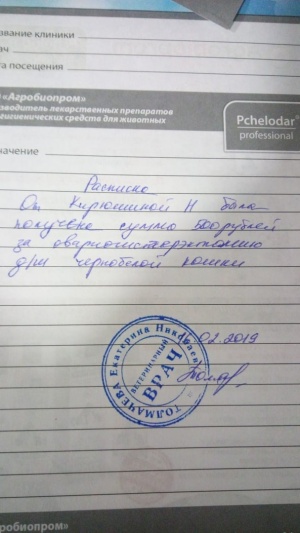 звание клиники
ач
та посещения
«Агробиопром»
зводитель лекарственных препаратов
гигиенических средств для животных
Pchelodar®
professional
начение
Расписка
От Кирюшиной Н была
получена сумма 500 рублей
за овариогистерэктомию
д/ш чернобелой кошки
02.2019
ТОЛМАЧЕВА Екатерина Николаевна
ВЕТЕРИНАРНЫЙ
ВРАЧ
гробиопром»